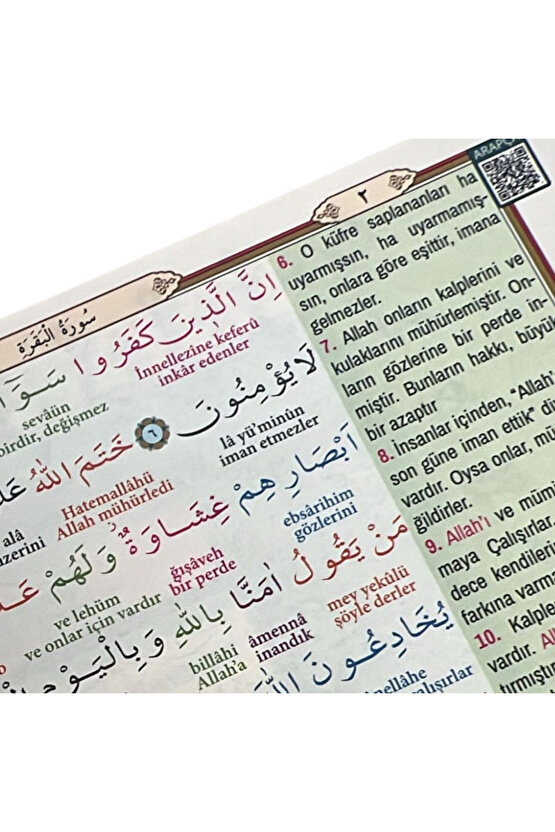 ARAPÇA
٢
سُورَةُ الْبَقَرَةِ
اِنَّ الَّذِينَ كَفَرُوا سَوَا
İnnellezine keferû
inkâr edenler
sevâün
birdir, değişmez
لَا يُؤْمِنُونَ ﴿٦﴾ خَتَمَ اللّٰهُ
lâ yü'minûn
iman etmezler
Hatemallâhü
Allah mühürledi
alâ
اَبْصَارِهِمْ غِشَاوَةٌ وَلَهُمْ
ebsârihim
gözlerini
ğışâveh
bir perde
ve lehüm
ve onlar için vardır
مَنْ يَقُولُ اٰمَنَّا بِاللّٰهِ وَبِالْيَوْمِ
mey yekûlü
şöyle derler
âmennâ
inandık
billâhi
Allah'a
يُخَادِعُونَ
6. O küfre saplananları ha
uyarmışsın, ha uyarmamış-
sın, onlara göre eşittir, imana
gelmezler.
7. Allah onların kalplerini ve
kulaklarını mühürlemiştir. On-
ların gözlerine bir perde in-
miştir. Bunların hakkı, büyü
bir azaptır
8. İnsanlar içinden, "Allah'
son güne iman ettik" di
vardır. Oysa onlar, mü
ğildirler.
9. Allah'ı ve mümi
maya Çalışırlar
dece kendileri
farkına varm
10. Kalple
vardır. Al
tırmıştı